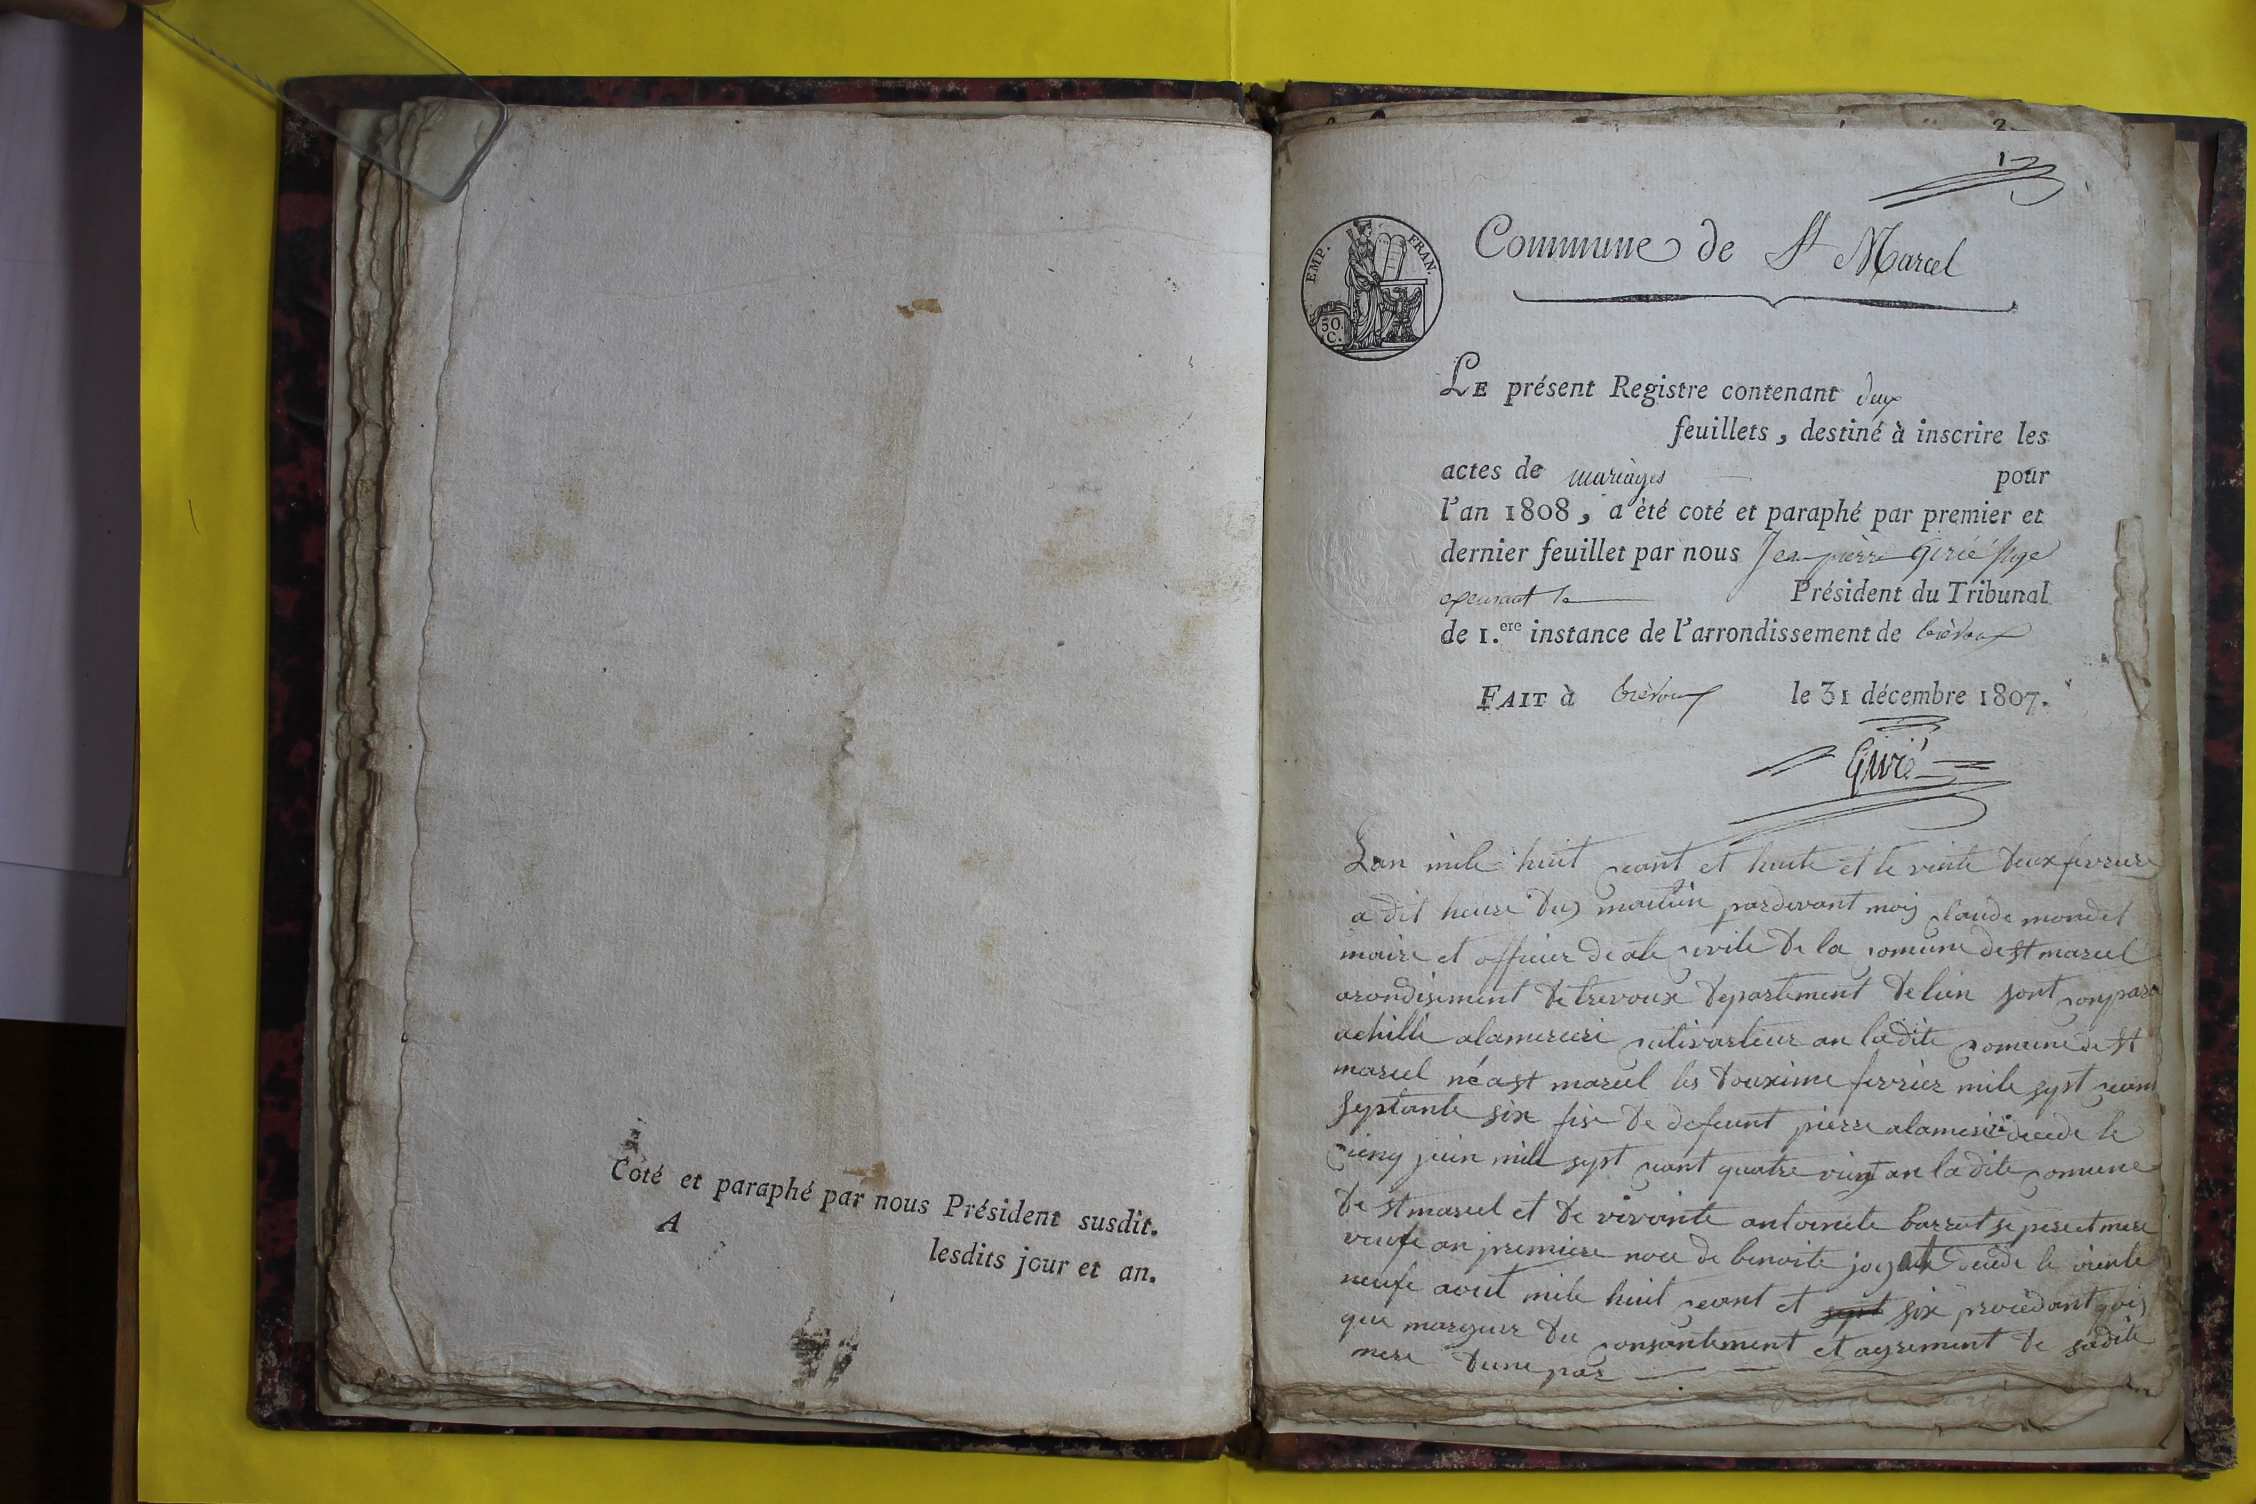 Coté et paraphé par nous Président susdit.
A
lesdits jour et an.
2
1
EMP. FRAN.
50.
C.
Commune de St Marcel
LE présent Registre contenant deux
feuillets, destiné à inscrire les
actes de mariages pour
l'an 1808, a été coté et paraphé par premier et
dernier feuillet par nous Jean pierre Girié Juge
Président du Tribunal
de 1.ere instance de l'arrondissement de trévoux
FAIT à trévoux le 31 décembre 1807.
Girié
Lan mile huit cant et huite et le vinte deux fevrier
a dit heure du matin pardevant moy claude mondel
maire et officier de civile de la comune de st marcel
arondisiment de trevoux departement de lain sont conpara
achille alamerceri cultivasteur an ladite comune de st
marcel né a st marcel les fevrier mile sept cant
septante six fise de defeunt pierre decede le
cinq juin mille sept cant quatre vingt an la dite comune
de st marcel et de vivante antoinete barrut se pere et mere
veufe an premiere noce de benoite decede le vinte
neufe aout mile huit cant et sept six procedant
que margeur du consantement et agrement de sadite
mere dune par